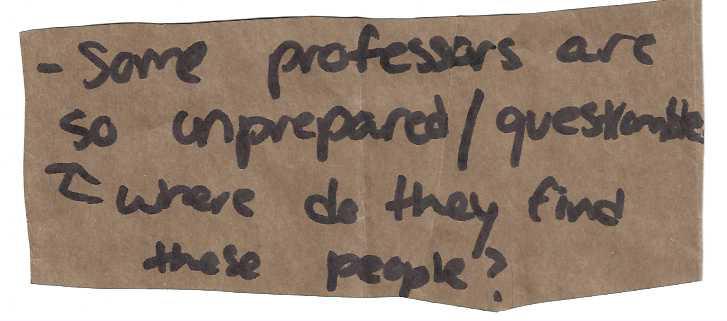 - Some professors are
so unprepared/questionable
↑ where do they find
these people?